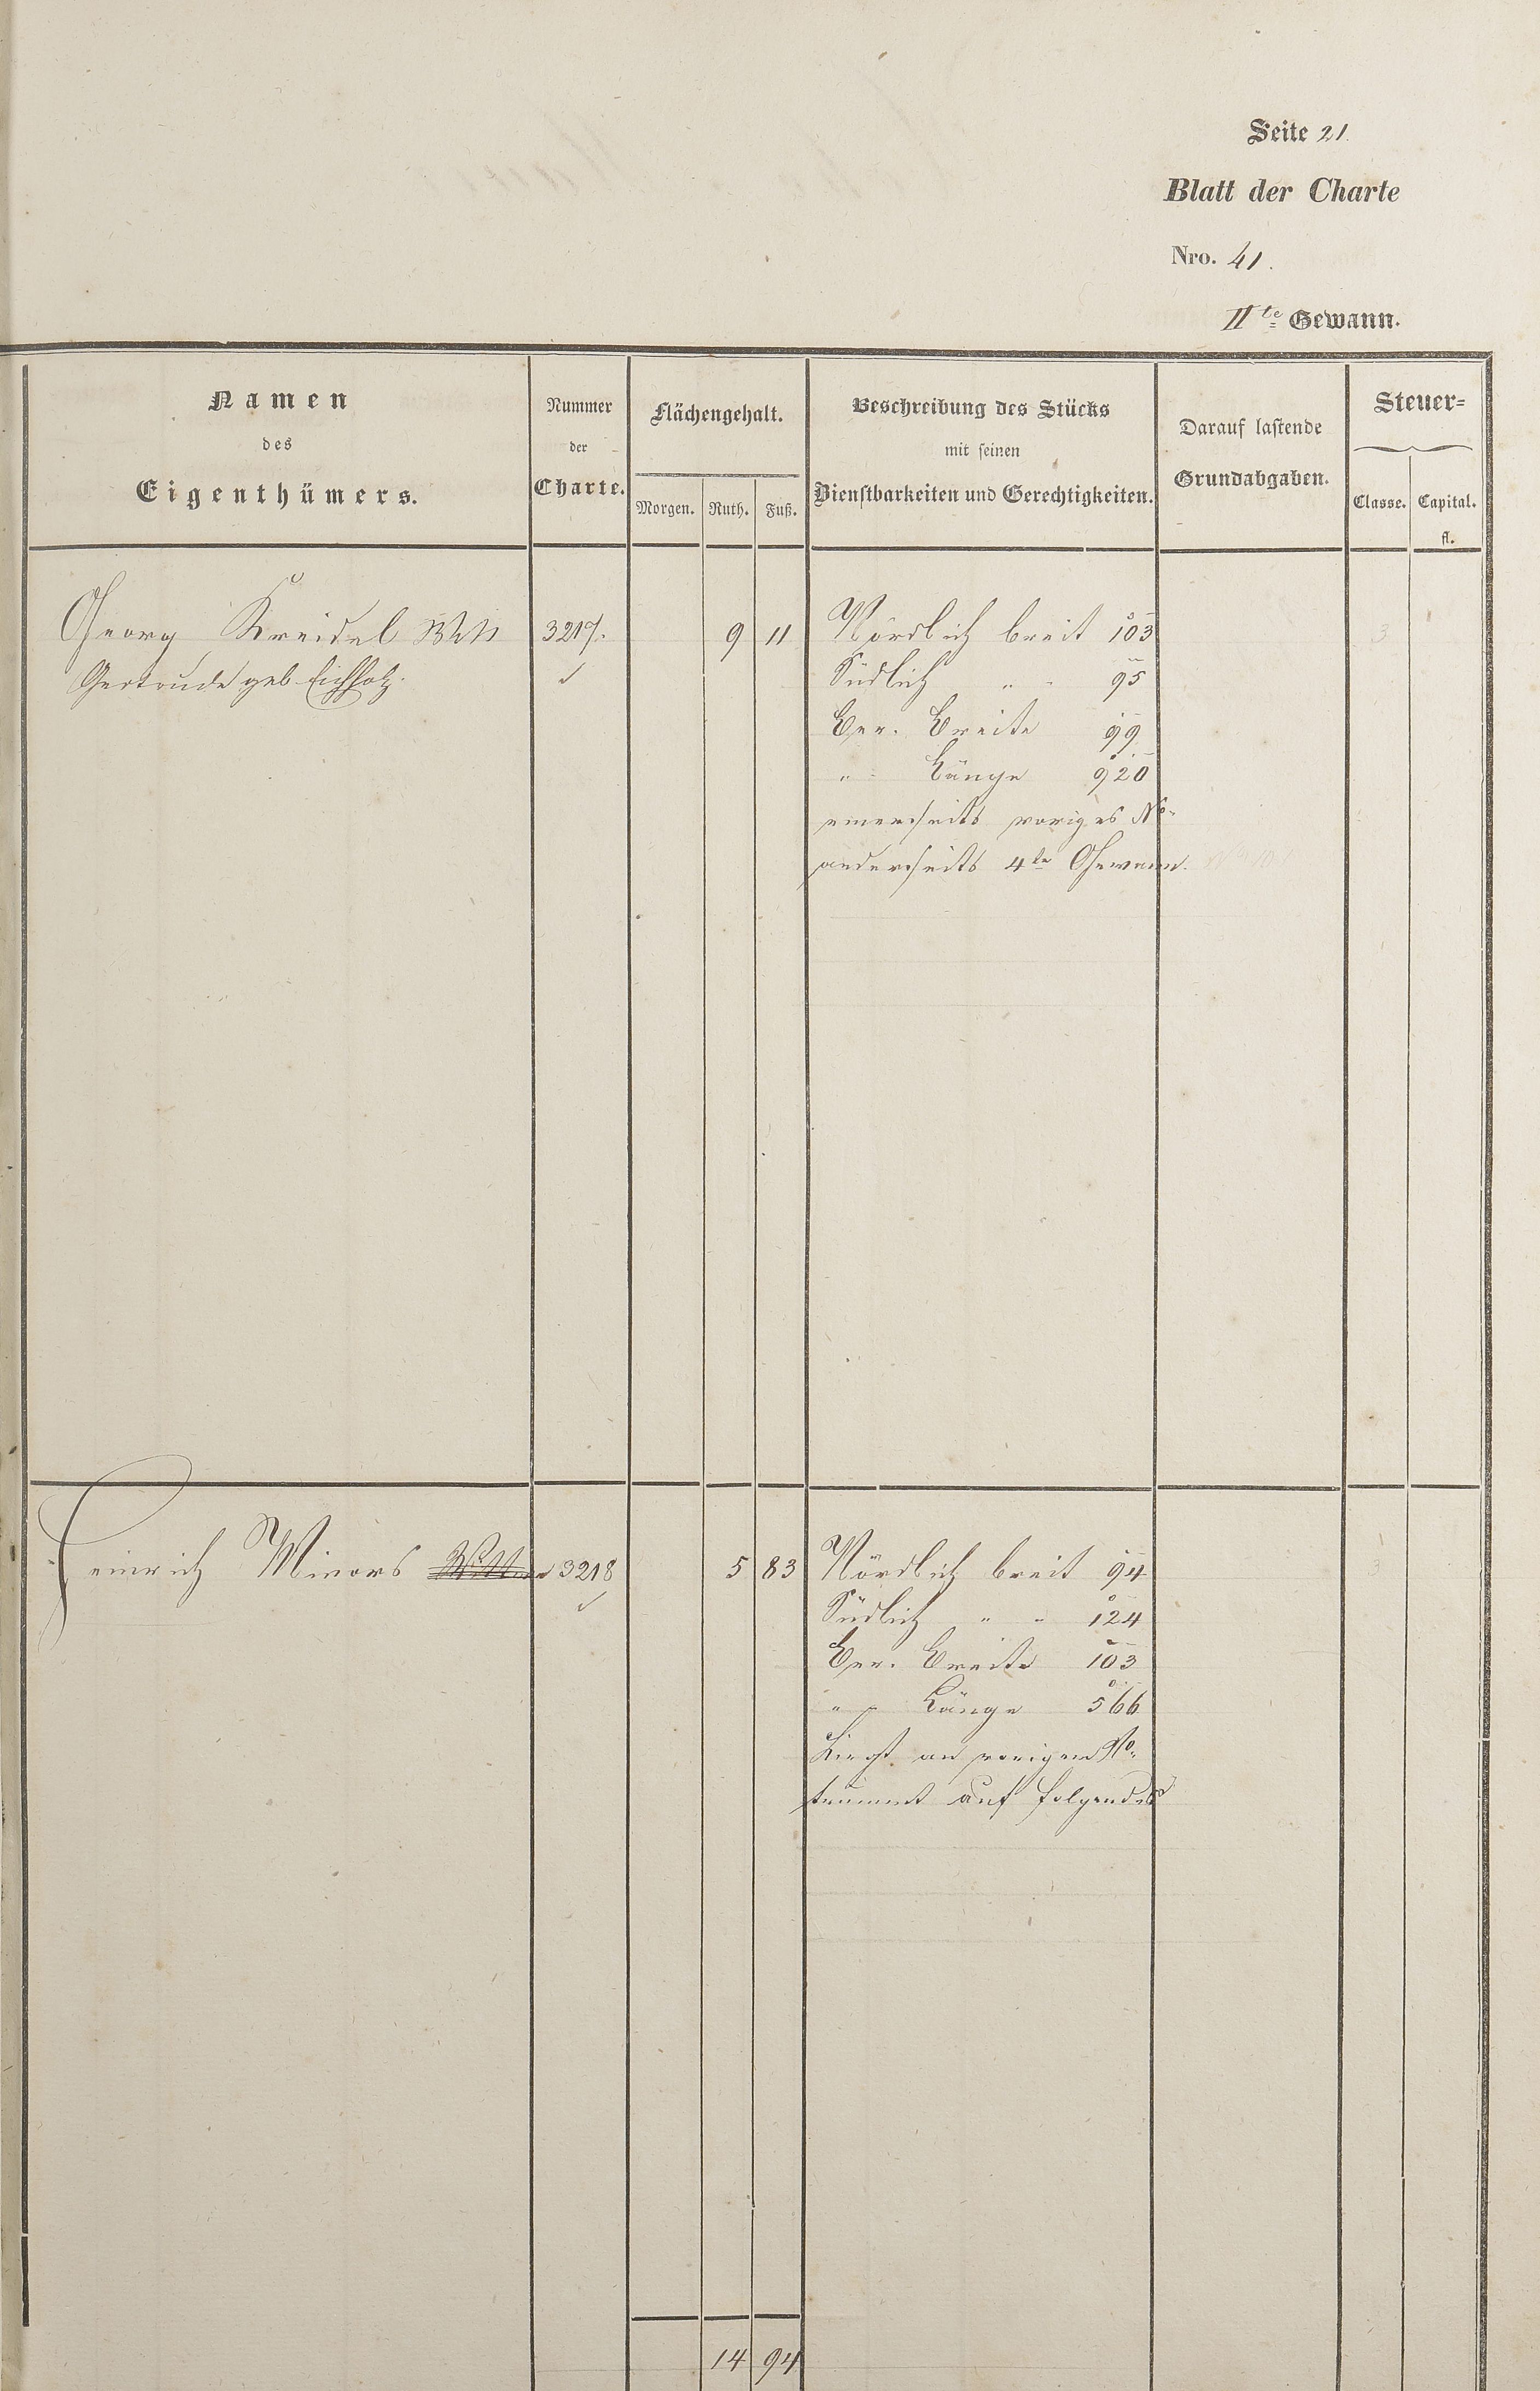 Seite 21.
Blatt der Charte
Nro. 41.
II te Gewann.
Namen
des
Eigenthümers.
Nummer
der
Charte.
Flächengehalt.
Morgen. Ruth. Fuß.
Beschreibung des Stücks
mit seinen
Dienstbarkeiten und Gerechtigkeiten.
Darauf lastende
Grundabgaben.
Steuer=
Classe. Capital.
fl.
Georg Kreidel Wtb 3217. 9 11 Nördlich breit 103 3
Gertrude geb. Eichholz. Südlich " - 95
Ger. Breite 99
" - Länge 920
einerseits voriges No
anderseits 4te Gewann.
Heinrich Minors 3218 5 83 Nördlich breit 94 3
Südlich " - 124
Ger. Breite 103
" - Länge 566
Liegt an vorigem No.
auf folgendes
14 94